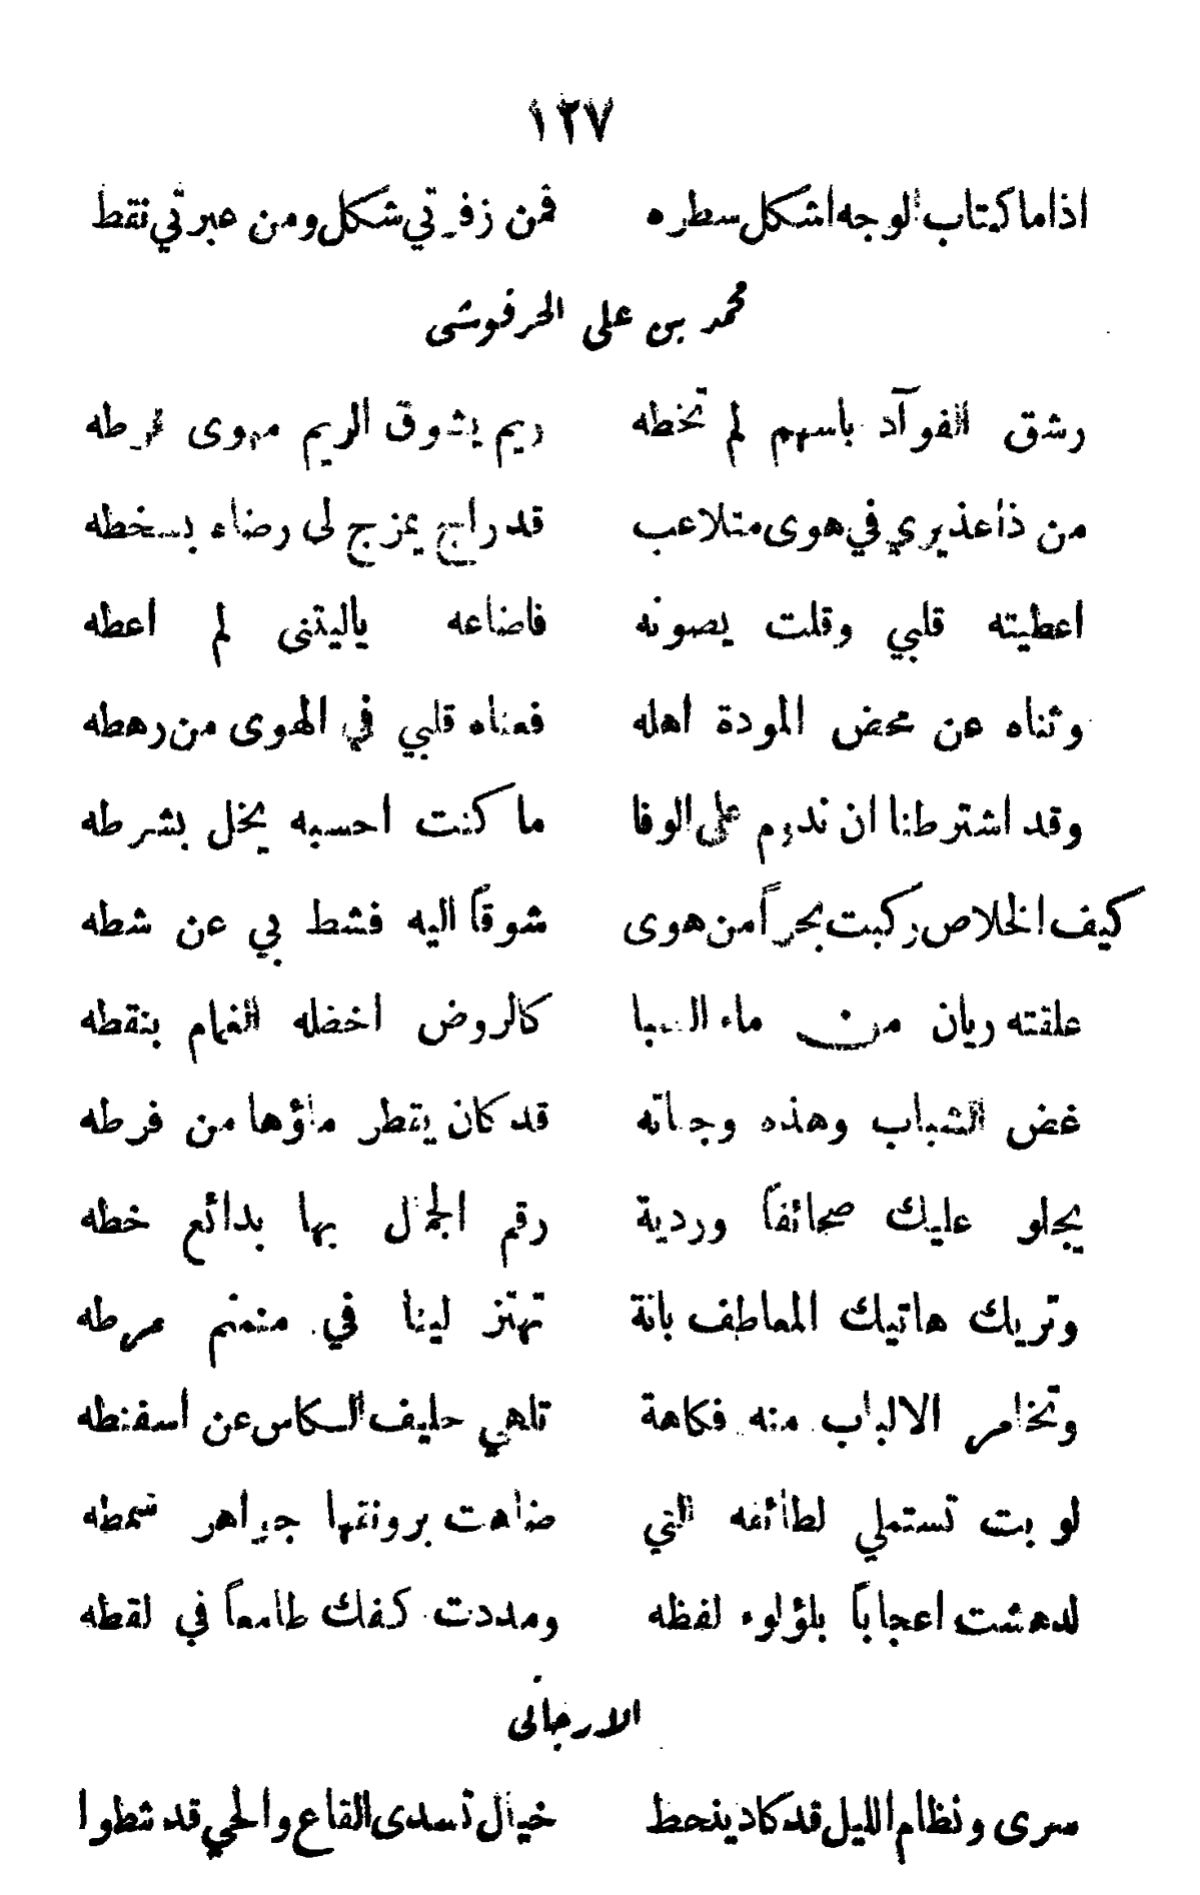 ١٢٧
اذا ما كتاب الوجه اشكل سطره فمن زفرتي شكل ومن عبرتي نقط
محمد بن على الحرفوشى
رشق الفوآد باسهم لم تخطه ريم يشوق الريم مهوى قرطه
من ذا عذيري في هوى متلاعب قد راح يمزج لى رضاء بسخطه
اعطيته قلبي وقلت يصونه فاضاعه ياليتنى لم اعطه
وثناه عن محض المودة اهله فعناه قلبي في الهوى من رهطه
وقد اشترطنا ان ندوم على الوفا ما كنت احسبه يخل بشرطه
كيف الخلاص ركبت بحراً من هوى شوقاً اليه فشط بي عن شطه
علقته ريان من ماء الصبا كالروض اخضله الغمام بنقطه
غض الشباب وهذه وجناته قد كان يقطر ماؤها من فرطه
يجلو عليك صحائفاً وردية رقم الجمال بها بدائع خطه
وتريك هاتيك المعاطف بانة تهتز لينا في منمنم مرطه
وتخامر الالباب منه فكاهة تلهي حليف الكاس عن اسفنطه
لو بت تستملي لطائفه التي ضاهت برونقها جواهر سمطه
لدهشت اعجاباً بلؤلوء لفظه ومددت كفك طامعاً في لقطه
الارجانى
سرى ونظام الليل قد كاد ينحط خيال تسدى القاع والحي قد شطوا